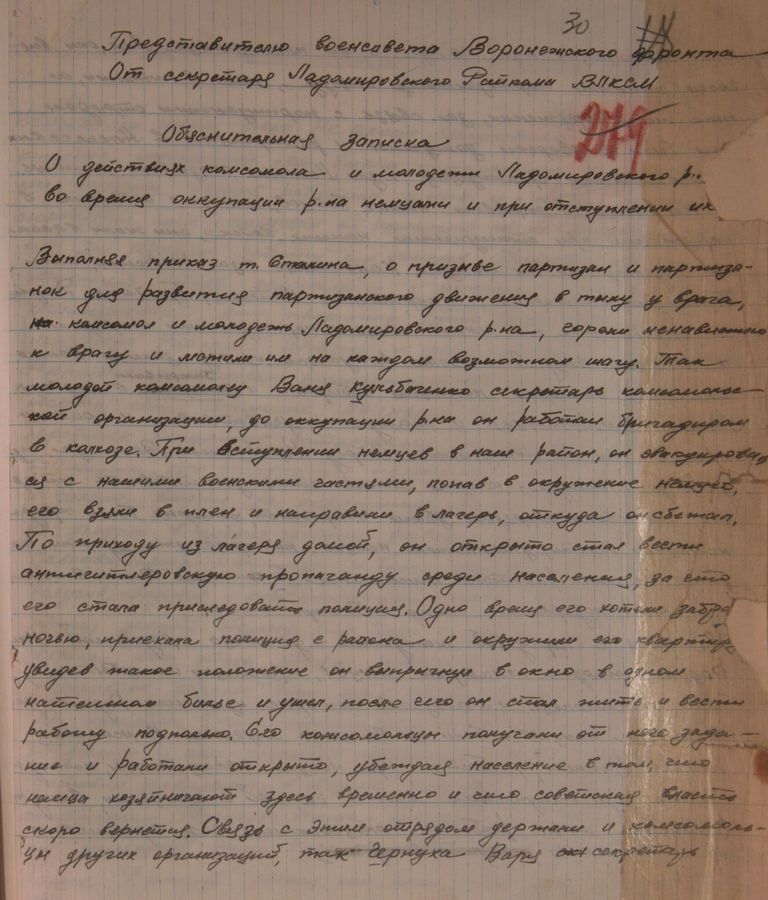 30
Представителю военсовета Воронежского фронта
От секретаря Ладомировского Райкома ВЛКСМ
279
Обяснительная записка
О действиях комсомола и молодежи Ладомировского р..
во время оккупации р.на немцами и при отступлении их
Выполняя приказ т. Сталина, о призыве партизан и партиза-
нок для развития партизанского движения в тылу у врага,
комсомол и молодежь Ладомировского р.на, горели ненавистью
к врагу и мстили им на каждом возможном шагу. Так
молодой комсомолец Ваня секретарь комсомольс-
кой организации, до оккупации р.на он работал бригадиром
в колхозе. При вступлении немцев в наш район, он эвакуировал
ся с нашими воинскими частями, попав в окружение немцев,
его взяли в плен и направили в лагерь, откуда он сбежал.
По приходу из лагеря домой, он открыто стал вести
антигитлеровскую пропаганду среди населения, за что
его стала приследовать полиция. Одно время его хотели забра
ночью, приехала полиция с района и окружили его квартиру
увидев такое положение он выпрыгнул в окно в одном
нательном билье и ушел, после чего он стал жить и вести
работу подпольно. Его комсомольцы получали от него зада-
ние и работали открыто, убеждая население в том, что
немцы хозяйничают здесь временно и что советская власть
скоро вернется. Связь с этим отрядом держали и комсомоль-
цы других организаций, так Чернуха Варя секретарь